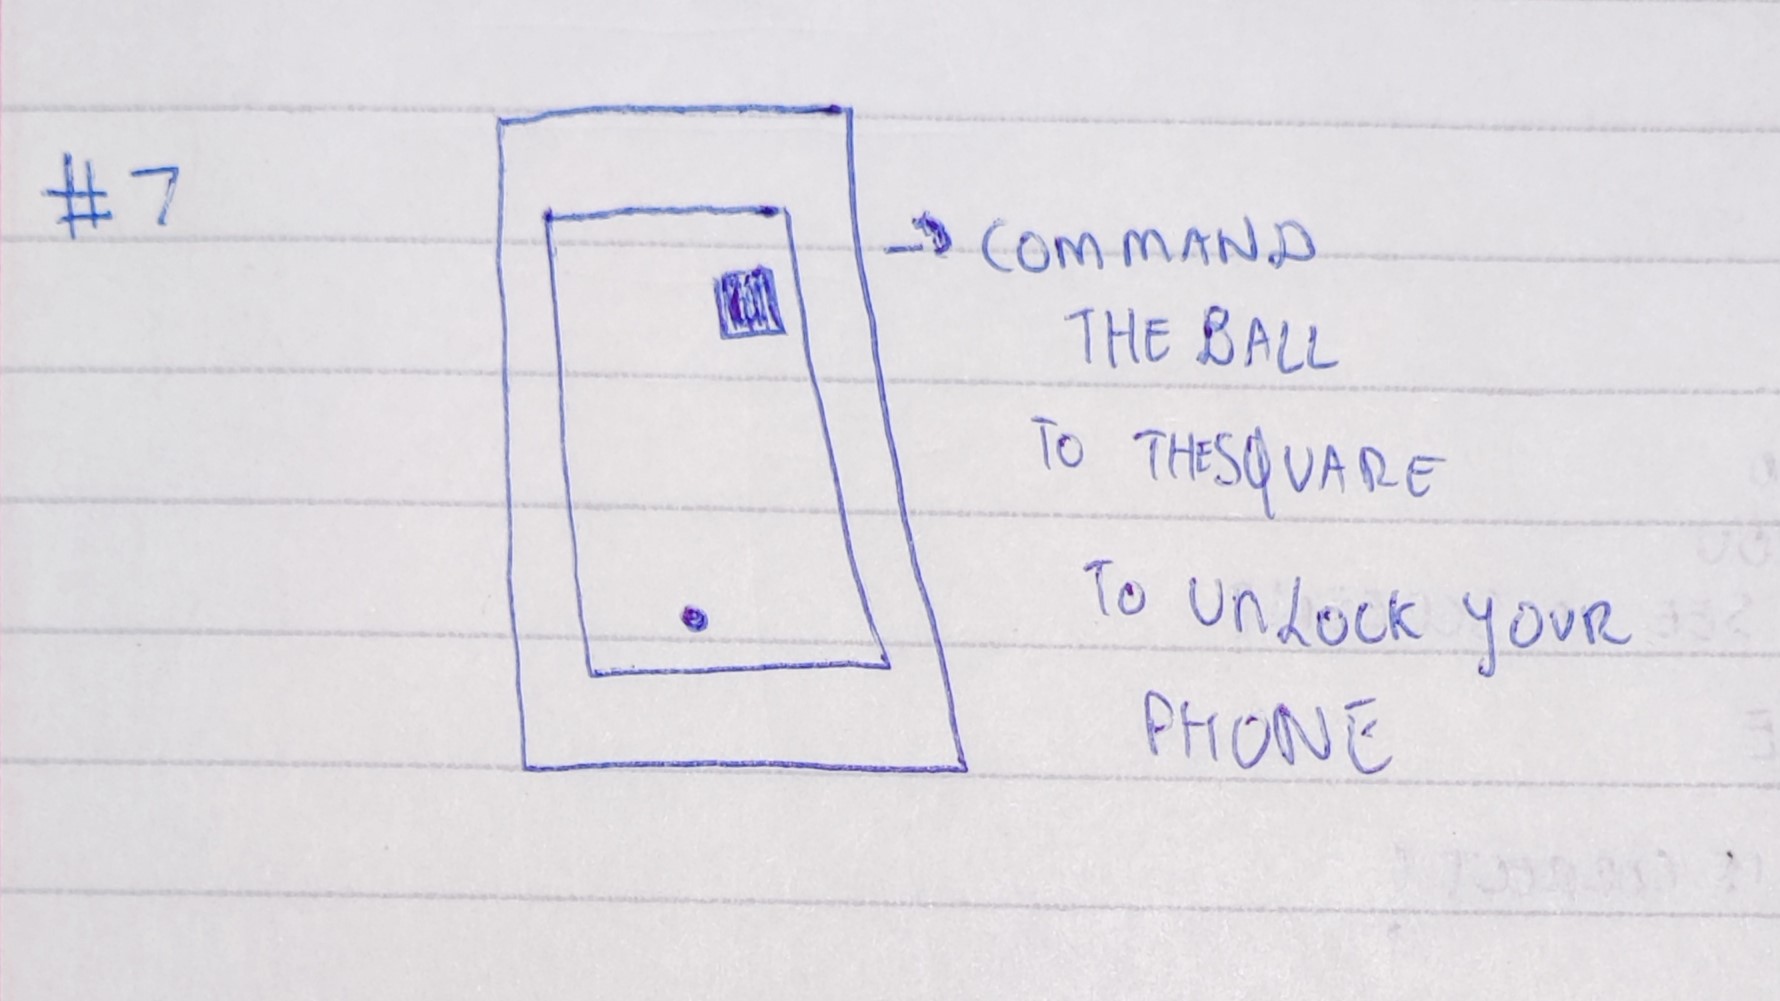 #7
→ COMMAND
THE BALL
TO THE SQUARE
TO UNLOCK YOUR
PHONE